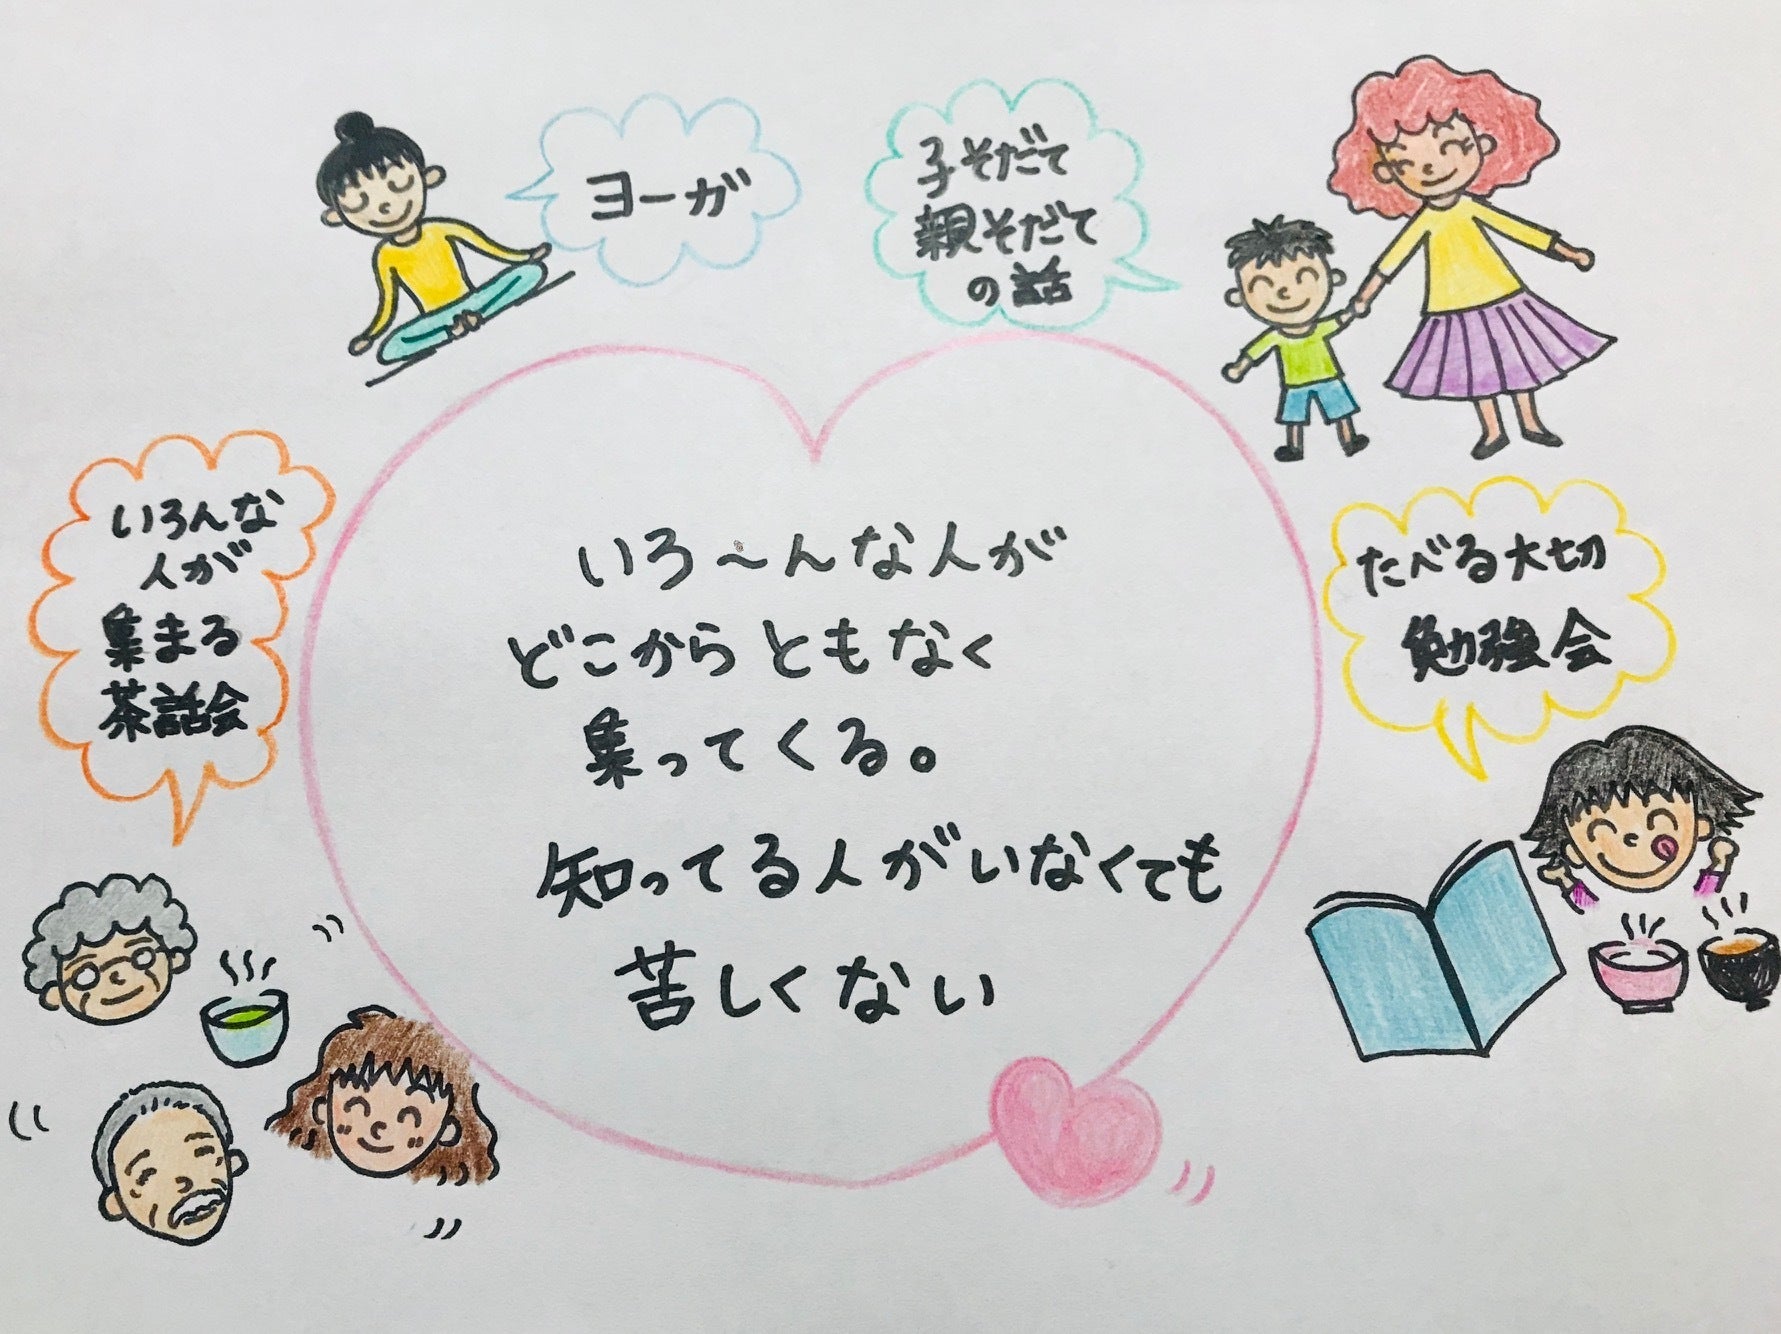 ヨーガ
子そだて
親そだて
の話
いろんな
人が
集まる
茶話会
たべる大切
勉強会
いろ～んな人が
どこからともなく
集ってくる。
知ってる人がいなくても
苦しくない